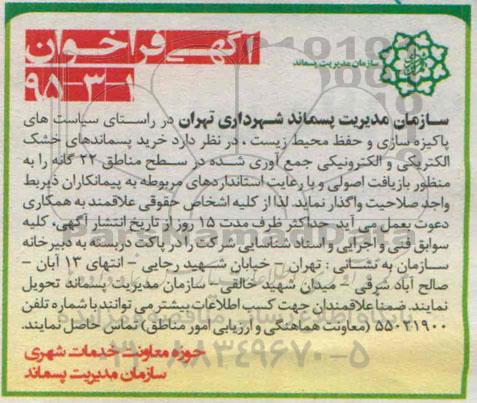 آگهی فراخوان
۹۵-۳-۱
سازمان مدیریت پسماند
سازمان مدیریت پسماند شهرداری تهران در راستای سیاست های
پاکیزه سازی و حفظ محیط زیست ، در نظر دارد خرید پسماندهای خشک
الکتریکی و الکترونیکی جمع آوری شده در سطح مناطق ۲۲ گانه را به
منظور بازیافت اصولی و با رعایت استانداردهای مربوطه به پیمانکاران ذیربط
واجد صلاحیت واگذار نماید. لذا از کلیه اشخاص حقوقی علاقمند به همکاری
دعوت بعمل می آید حداکثر ظرف مدت ۱۵ روز از تاریخ انتشار آگهی، کلیه
سوابق فنی و اجرایی و اسناد شناسایی شرکت را در پاکت دربسته به دبیرخانه
سازمان به نشانی : تهران - خیابان شهید رجایی - انتهای ۱۳ آبان -
صالح آباد شرقی - میدان شهید خالقی - سازمان مدیریت پسماند تحویل
نمایند. ضمنا علاقمندان جهت کسب اطلاعات بیشتر می توانند با شماره تلفن
۵۵۰۲۱۹۰۰ (معاونت هماهنگی و ارزیابی امور مناطق) تماس حاصل نمایند.
حوزه معاونت خدمات شهری
سازمان مدیریت پسماند
۰۲۱-۸۸۳۴۹۶۷۰-۵